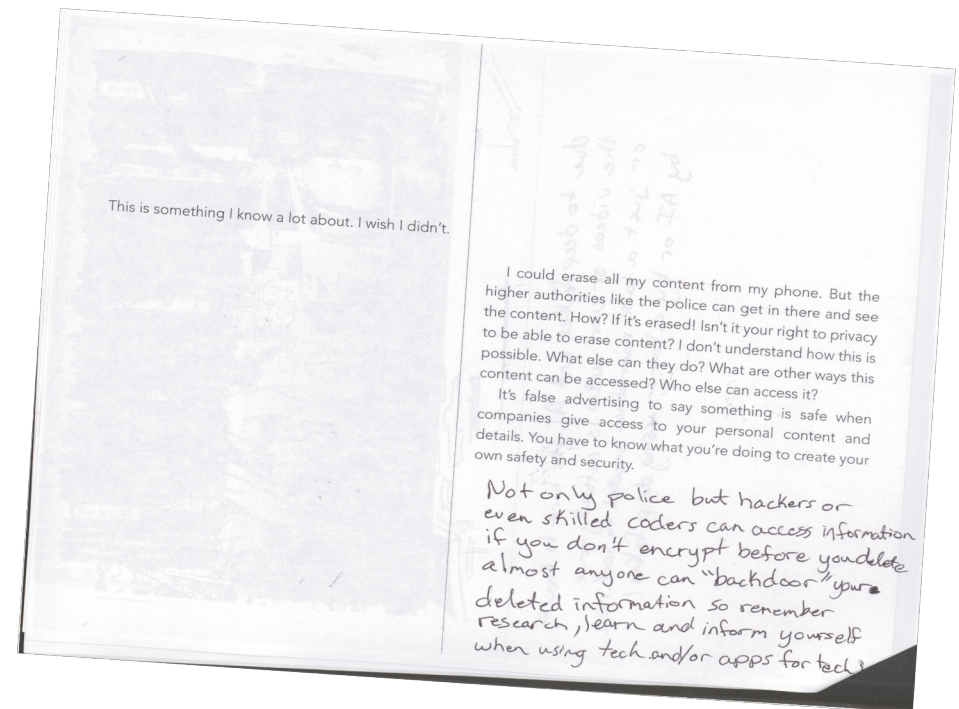 This is something I know a lot about. I wish I didn't.
I could erase all my content from my phone. But the
higher authorities like the police can get in there and see
the content. How? If it's erased! Isn't it your right to privacy
to be able to erase content? I don't understand how this is
possible. What else can they do? What are other ways this
content can be accessed? Who else can access it?
It's false advertising to say something is safe when
companies give access to your personal content and
details. You have to know what you're doing to create your
own safety and security.
Not only police but hackers or
even skilled coders can access information
if you don't encrypt before you delete
almost anyone can "backdoor" your
deleted information so remember
research, learn and inform yourself
when using tech and/or apps for tech